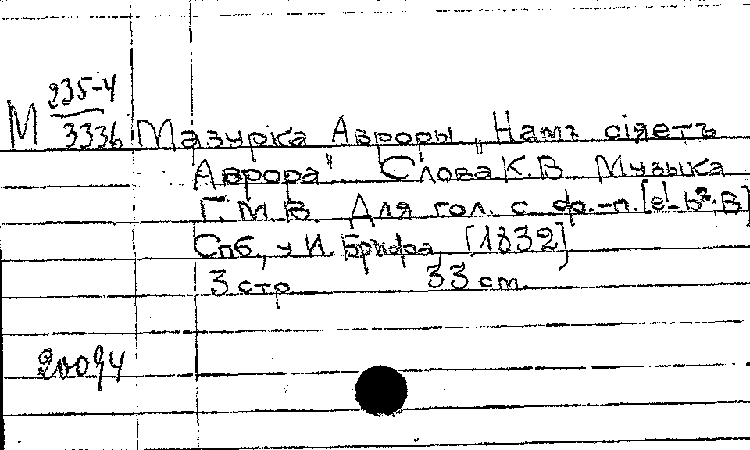 М 235-4
3336
Мазурка Авроры „Намъ сіяетъ
Аврора". Слова К. В. Музыка
Г. М. В. Для гол. с фр.-п. [e¹-b². B]
Спб., у И. Брифа, [1832]
3 стр. 33 см.
20094